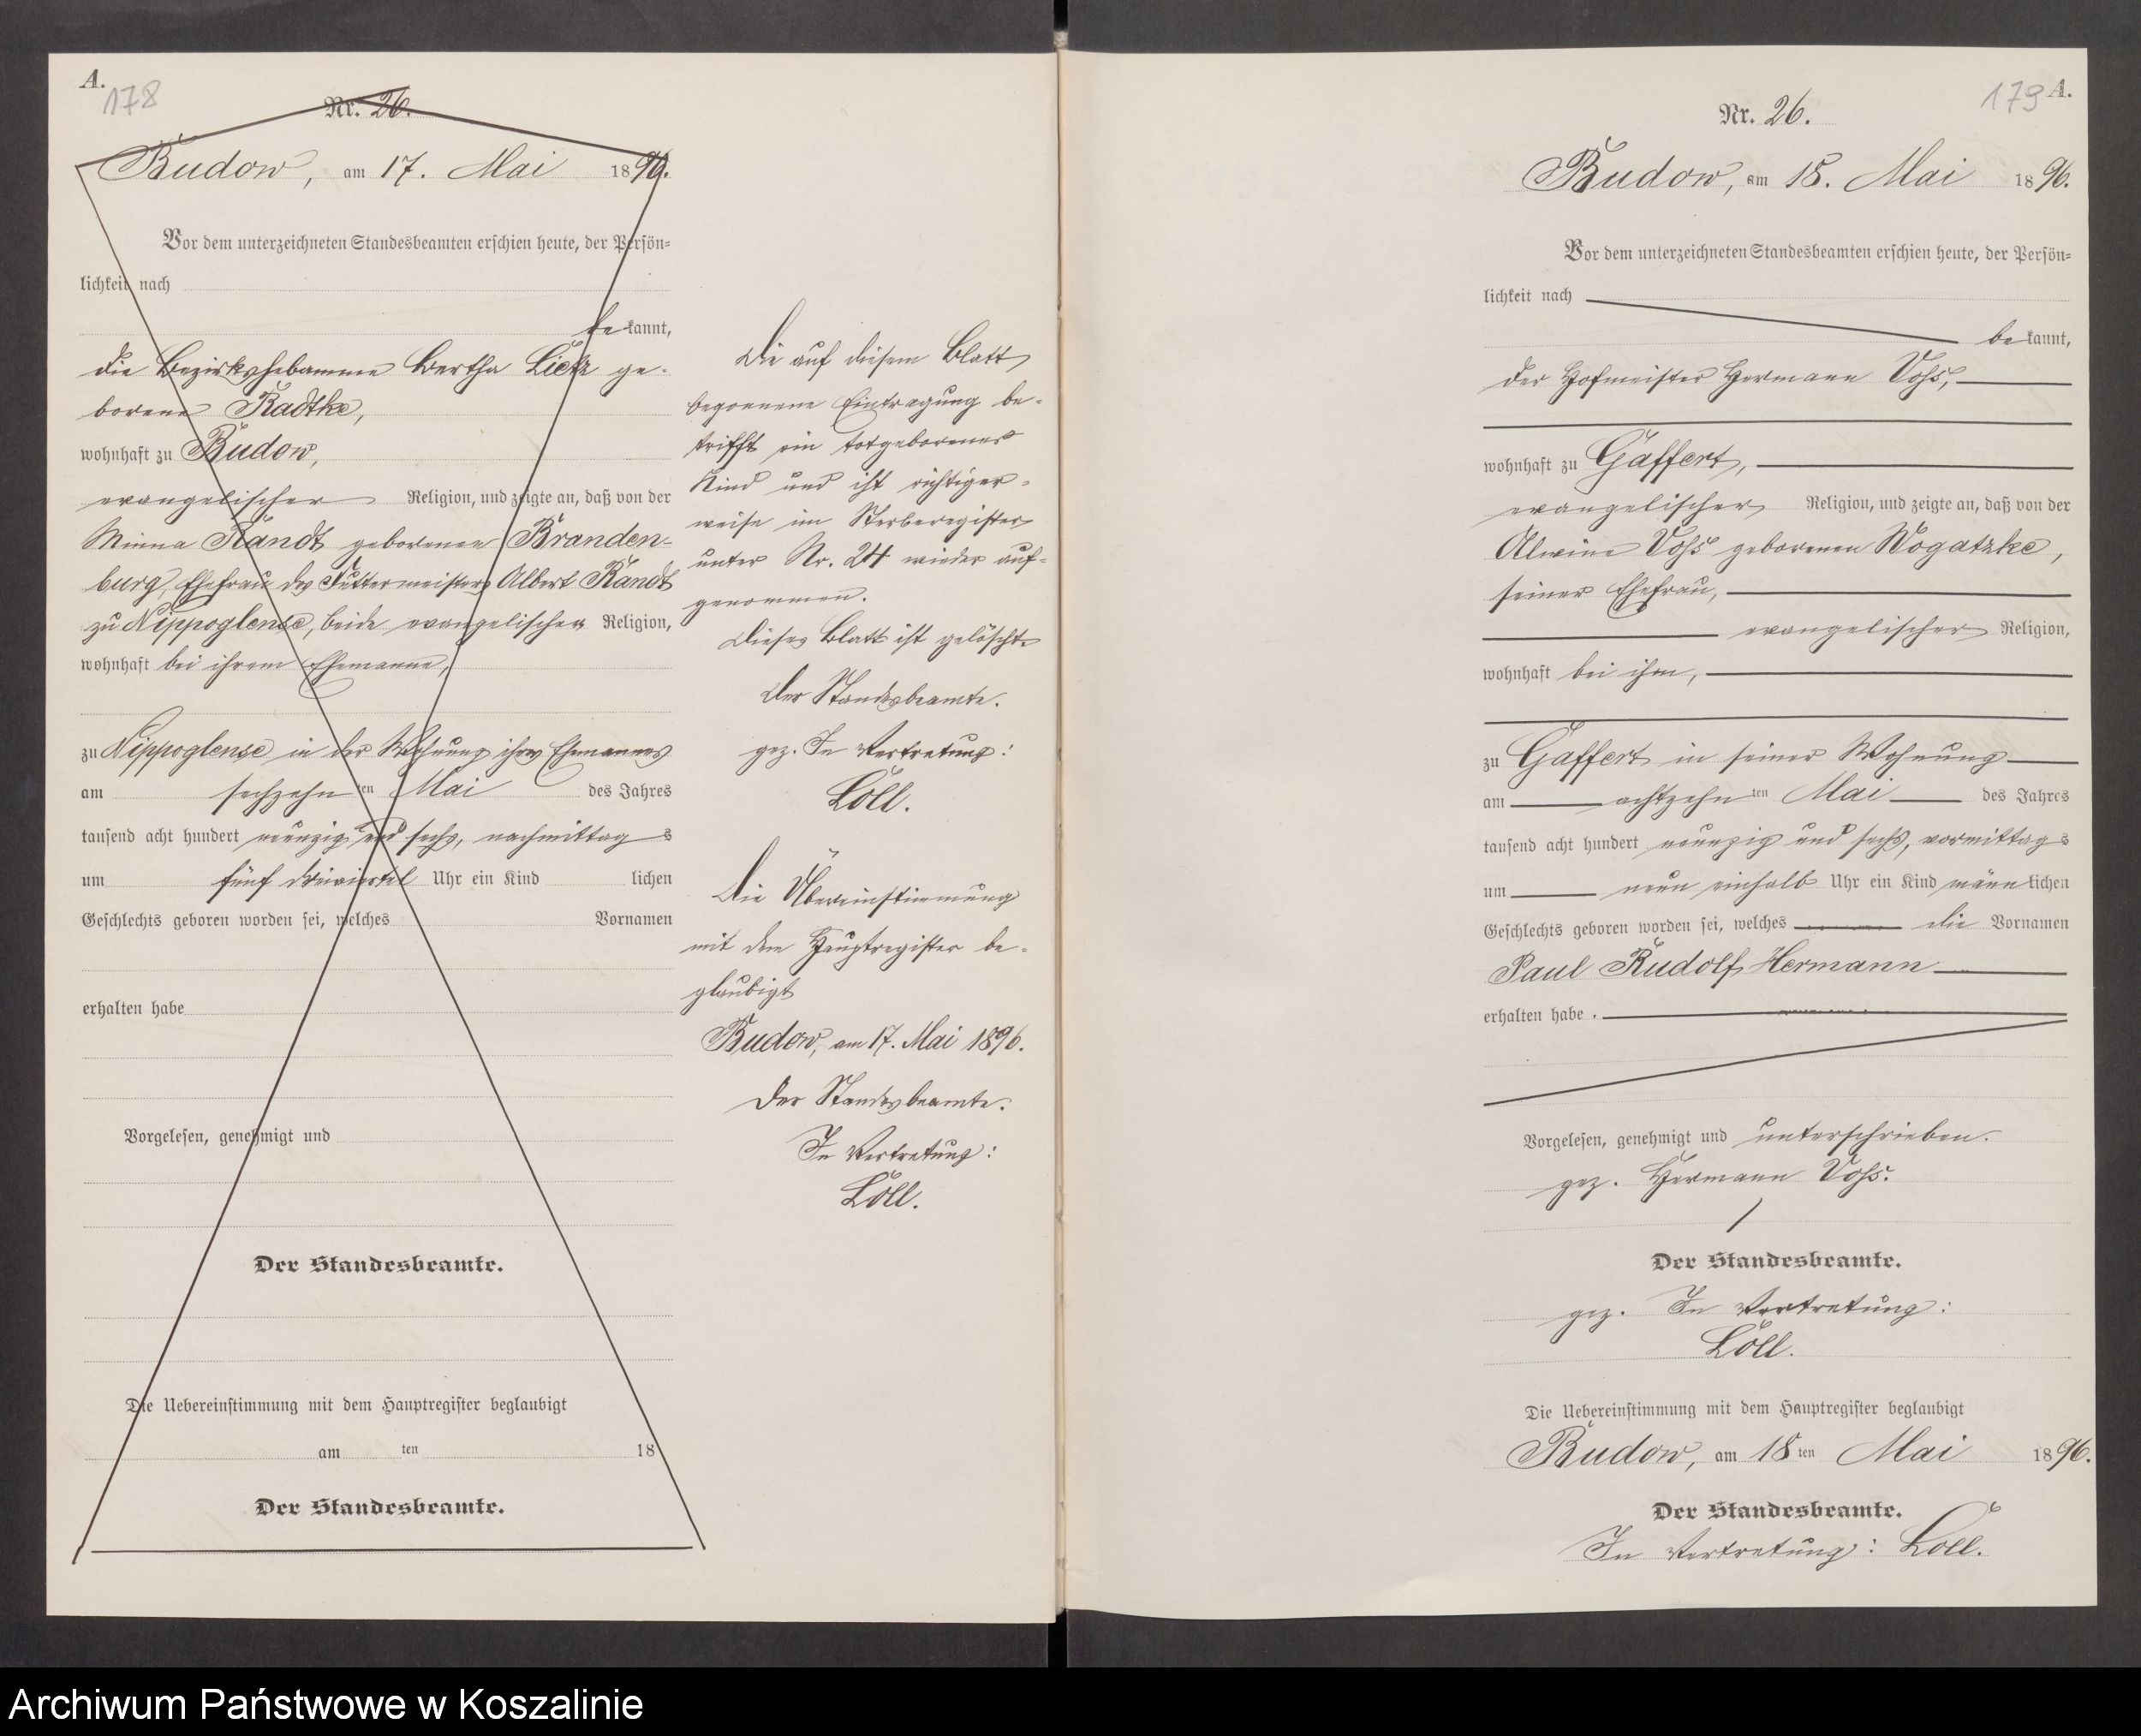 A.
178
Nr. 26.
Budow, am 17. Mai 1896.
Vor dem unterzeichneten Standesbeamten erschien heute, der Persön-
lichkeit nach
be kannt,
die Bezirkshebamme Bertha Lietz ge-
borene Radtke,
wohnhaft zu Budow,
evangelischer Religion, und zeigte an, daß von der
Minna Randt geborenen Branden-
burg, Ehefrau des Futtermeisters Albert Randt
zu Nippoglense, beide evangelischer Religion,
wohnhaft bei ihrem Ehemanne,
zu Nippoglense in der Wohnung ihres Ehemannes
am sechzehn ten Mai des Jahres
tausend acht hundert neunzig und sechs, nachmittag s
um fünf dreiviertel Uhr ein Kind lichen
Geschlechts geboren worden sei, welches Vornamen
erhalten habe
Vorgelesen, genehmigt und
Der Standesbeamte.
Die Uebereinstimmung mit dem Hauptregister beglaubigt
am ten 18
Der Standesbeamte.
Die auf diesem Blatt
begonnene Eintragung be-
trifft ein totgeborenes
Kind und ist richtiger-
weise im Sterberegister
unter Nr. 24 wieder auf-
genommen.
Dieses Blatt ist gelöscht.
Der Standesbeamte.
gez. In Vertretung:
Löll.
Die Übereinstimmung
mit dem Hauptregister be-
glaubigt
Budow, am 17. Mai 1896.
Der Standesbeamte.
In Vertretung:
Löll.
179
A.
Nr. 26.
Budow, am 18. Mai 1896.
Vor dem unterzeichneten Standesbeamten erschien heute, der Persön-
lichkeit nach
be kannt,
der Hofmeister Hermann Voß,
wohnhaft zu Gaffert,
evangelischer Religion, und zeigte an, daß von der
Alwine Voß geborenen Rogatzke,
seiner Ehefrau,
evangelischer Religion,
wohnhaft bei ihm,
zu Gaffert in seiner Wohnung
am achtzehn ten Mai des Jahres
tausend acht hundert neunzig und sechs, vormittag s
um neun einhalb Uhr ein Kind männ lichen
Geschlechts geboren worden sei, welches die Vornamen
Paul Rudolf Hermann
erhalten habe.
Vorgelesen, genehmigt und unterschrieben.
gez. Hermann Voß.
Der Standesbeamte.
gez. In Vertretung:
Löll.
Die Uebereinstimmung mit dem Hauptregister beglaubigt
Budow, am 18 ten Mai 1896.
Der Standesbeamte.
In Vertretung: Löll.
Archiwum Państwowe w Koszalinie